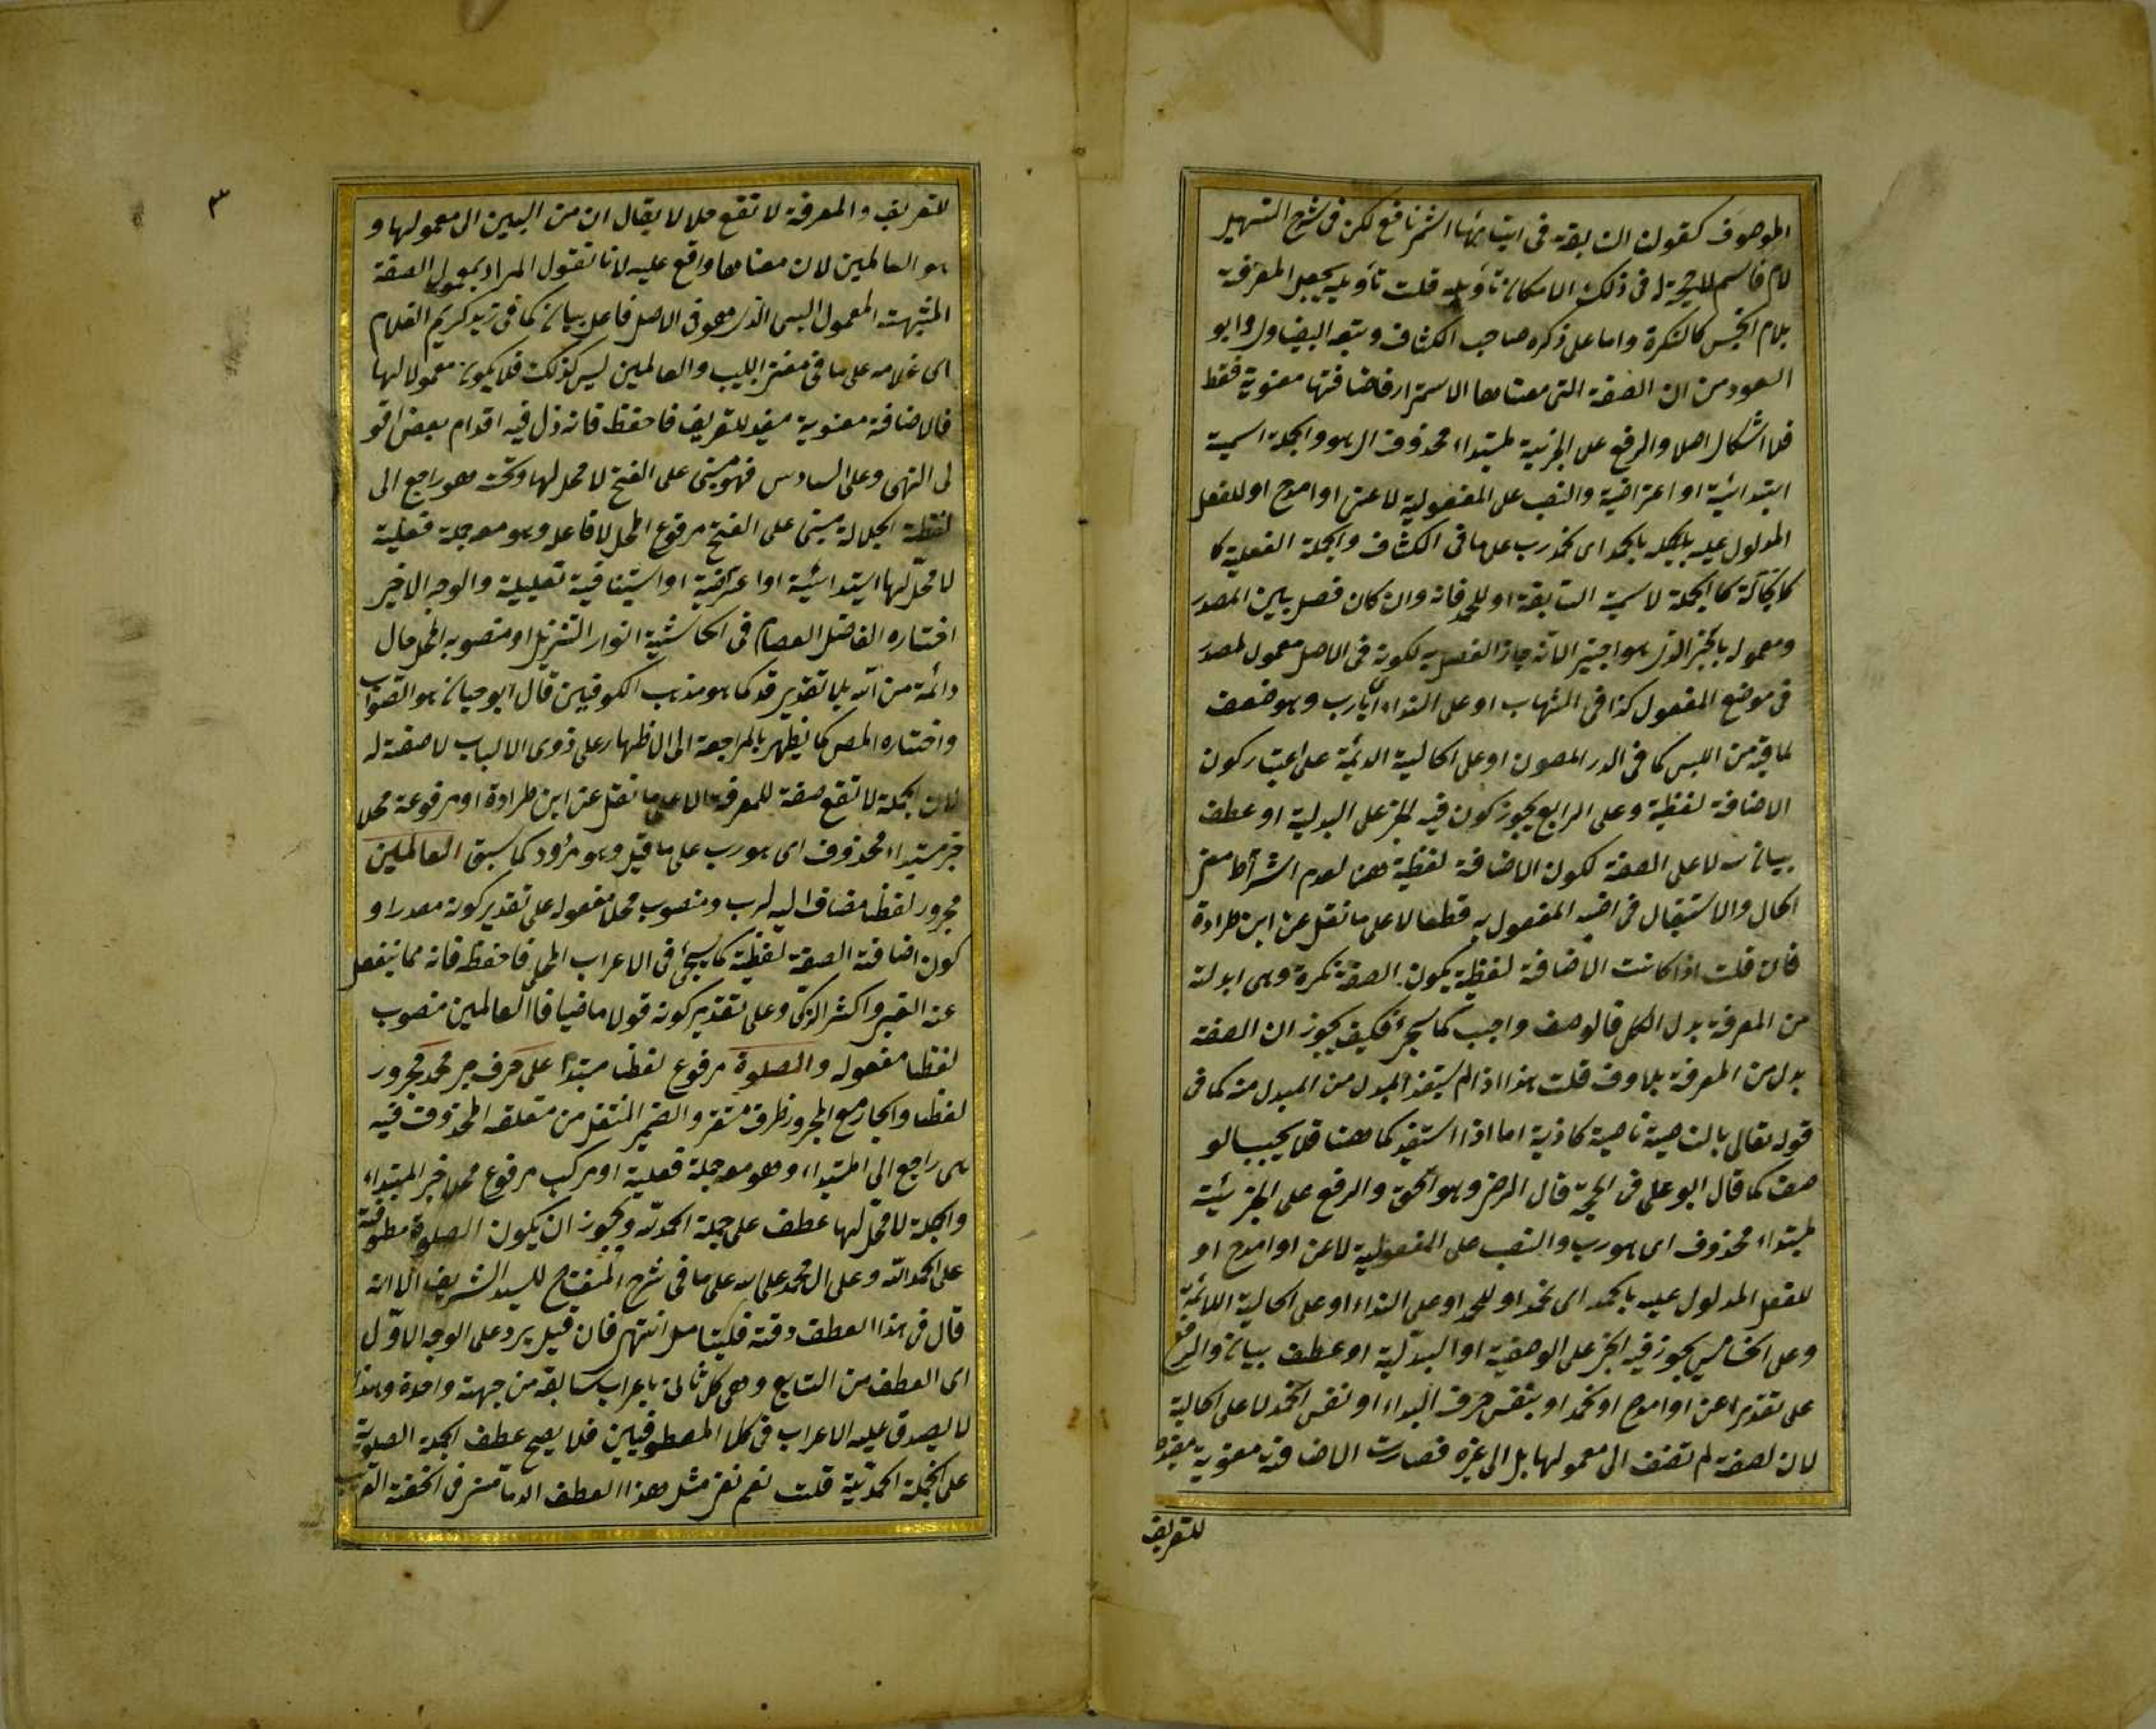 الموصوف كقول النابغة في انيابها السم ناقع لكن في شرح التسهيل
بلام الجنس كالنكرة واما على ذكره صاحب الكشاف وتبعه البيضاوي وابو
السعود من ان الصفة التي معناها الاستمرار فاضافتها معنوية فقط
فلا اشكال اصلا والرفع على الخبرية لمبتداء محذوف اي هو والجملة اسمية
ابتدائية او اعتراضية والنصب على المفعولية لاعني او امدح او للفعل
المدلول عليه بالحمد اي نحمد رب على ما في الكشاف والجملة الفعلية كا
كالجملة لاسمية السابقة او للحمد فانه وان كان فصل بين المصدر
ومعموله بالخبر الذي هو اجنبي الا انه جاز الفصل به لكونه في الاصل معمول لمصدر
في موضع المفعول كذا في الشهاب او على النداء اي يا رب وهو ضعف
لما فيه من اللبس كما في الدر المصون او على الحالية الدائمة على اعتبار كون
الاضافة لفظية وعلى الرابع يجوز كون فيه الجر على البدلية او عطف
بيان له لا على الصفة لكون الاضافة لفظية هنا لعدم اشتراط معنى
الحال والاستقبال في نصبه المفعول به قطعا لا على ما نقل عن ابن طراوة
فان قلت اذا كانت الاضافة لفظية يكون الصفة نكرة وهي ابدلت
من المعرفة بدل الكل فالوصف واجب كما سيجئ فكيف يجوز ان الصفة
بدل من المعرفة بلا وصف قلت هذا اذا لم يستفد المبدل من المبدل منه كما في
قوله تعالى بالناصية ناصية كاذبة اما اذا استفيد كما هنا فلا يجب الو
صف كما قال ابو على في الحجة قال الرضي وهو الحق والرفع على الخبرئية
لمبتداء محذوف اى هو رب والنصب على المفعولية لاعن او امدح او
للفعل المدلول عليه بالحمد اى نحمد او للحمد او على النداء او على الحالية اللائمة
وعلى الخامس يجوز فيه الجر على الوصفية او البدلية او عطف بيان والرفع
على تقدير اعنى او امدح او نحمد او بنفس حرف النداء او نفس الحمد لا على الحالية
لان لصفة لم تضف الى معمولها بل الى غيره فصارت الاضافة معنوية مفيدة
للتعريف
٣
للتعريف والمعرفة لا تقع حلا لا يقال ان من البين ال معمولها و
هو العالمين لان معناها واقع عليه لانا نقول المراد بمعمول الصفة
المشبهة المعمول السببى الذى هو في الاصل فاعل بيان كما في زيد كريم الغلام
اى غلامه على ما في مغنى اللبيب والعالمين ليس كذلك فلا يكون معمولا لها
فالاضافة معنوية مفيد للتعريف فاحفظ فانه زل فيه اقدام بعض اقو
لى النهى وعلى السادس فهو مبنى على الفتح لا محل لها وتحته هو راجع الى
لفظة الجلالة مبنى على الفتح مرفوع المحل لا فاعله وهو معه جملة فعلية
لا محل لها ابتدائية او اعتراضية او استينافية تعليلية والوجه الاخير
اختاره الفاضل العصام في الحاشية انوار التنزيل او منصوبة المحل حال
دائمة من الله بلا تقدير قد كما هو مذهب الكوفيين قال ابو حيان هو الصواب
واختاره المص كما يظهر بالمراجعة الى الاظهار على ذوى الالباب لا صفة له
لان الجملة لا تقع صفة للمعرفة الا على ما نقل عن ابن طراوة او مرفوعة محلا
خبر مبتداء محذوف اى هو رب على ما قيل وهو مردود كما سبق العالمين
مجرور لفظا مضاف اليه لرب ومنصوب محلا مفعوله على تقدير كونه مصدرا و
كون اضافة الصفة لفظية كما سيجئ في الاعراب المحلى فاحفظه فانه مما يغفل
عنه الغبى واكثر الذكى وعلى تقدير كونه قولا ماضيا فالعالمين منصوب
لفظا مفعوله والصلوة مرفوع لفظا مبتدأ على حرف جر محمد مجرور
لفظا والجار مع المجرور ظرف مستقر والضمير المنتقل من متعلقه المحذوف فيه
هى راجع الى المبتداء وهو معه جملة فعلية او مركب مرفوع محلا خبر المبتداء
والجملة لا محل لها عطف على جملة الحمد لله ويجوز ان يكون الصلوة معطوفة
على الحمد الله وعلى ال محمد على لله على ما في شرح المفتاح للسيد الشريف الا انه
قال في هذا العطف دقة فليتأمل انتهى فان قيل يرد على الوجه الاول
اى العطف من التابع وهى كل ثان باعراب سابقه من جهة واحدة وهذا
لا يصدق عليه الاعراب في كلا المعطوفيين فلا يصح عطف الجملة الصلوية
على الجملة الحمدية قلت نعم نعم مثل هذا العطف